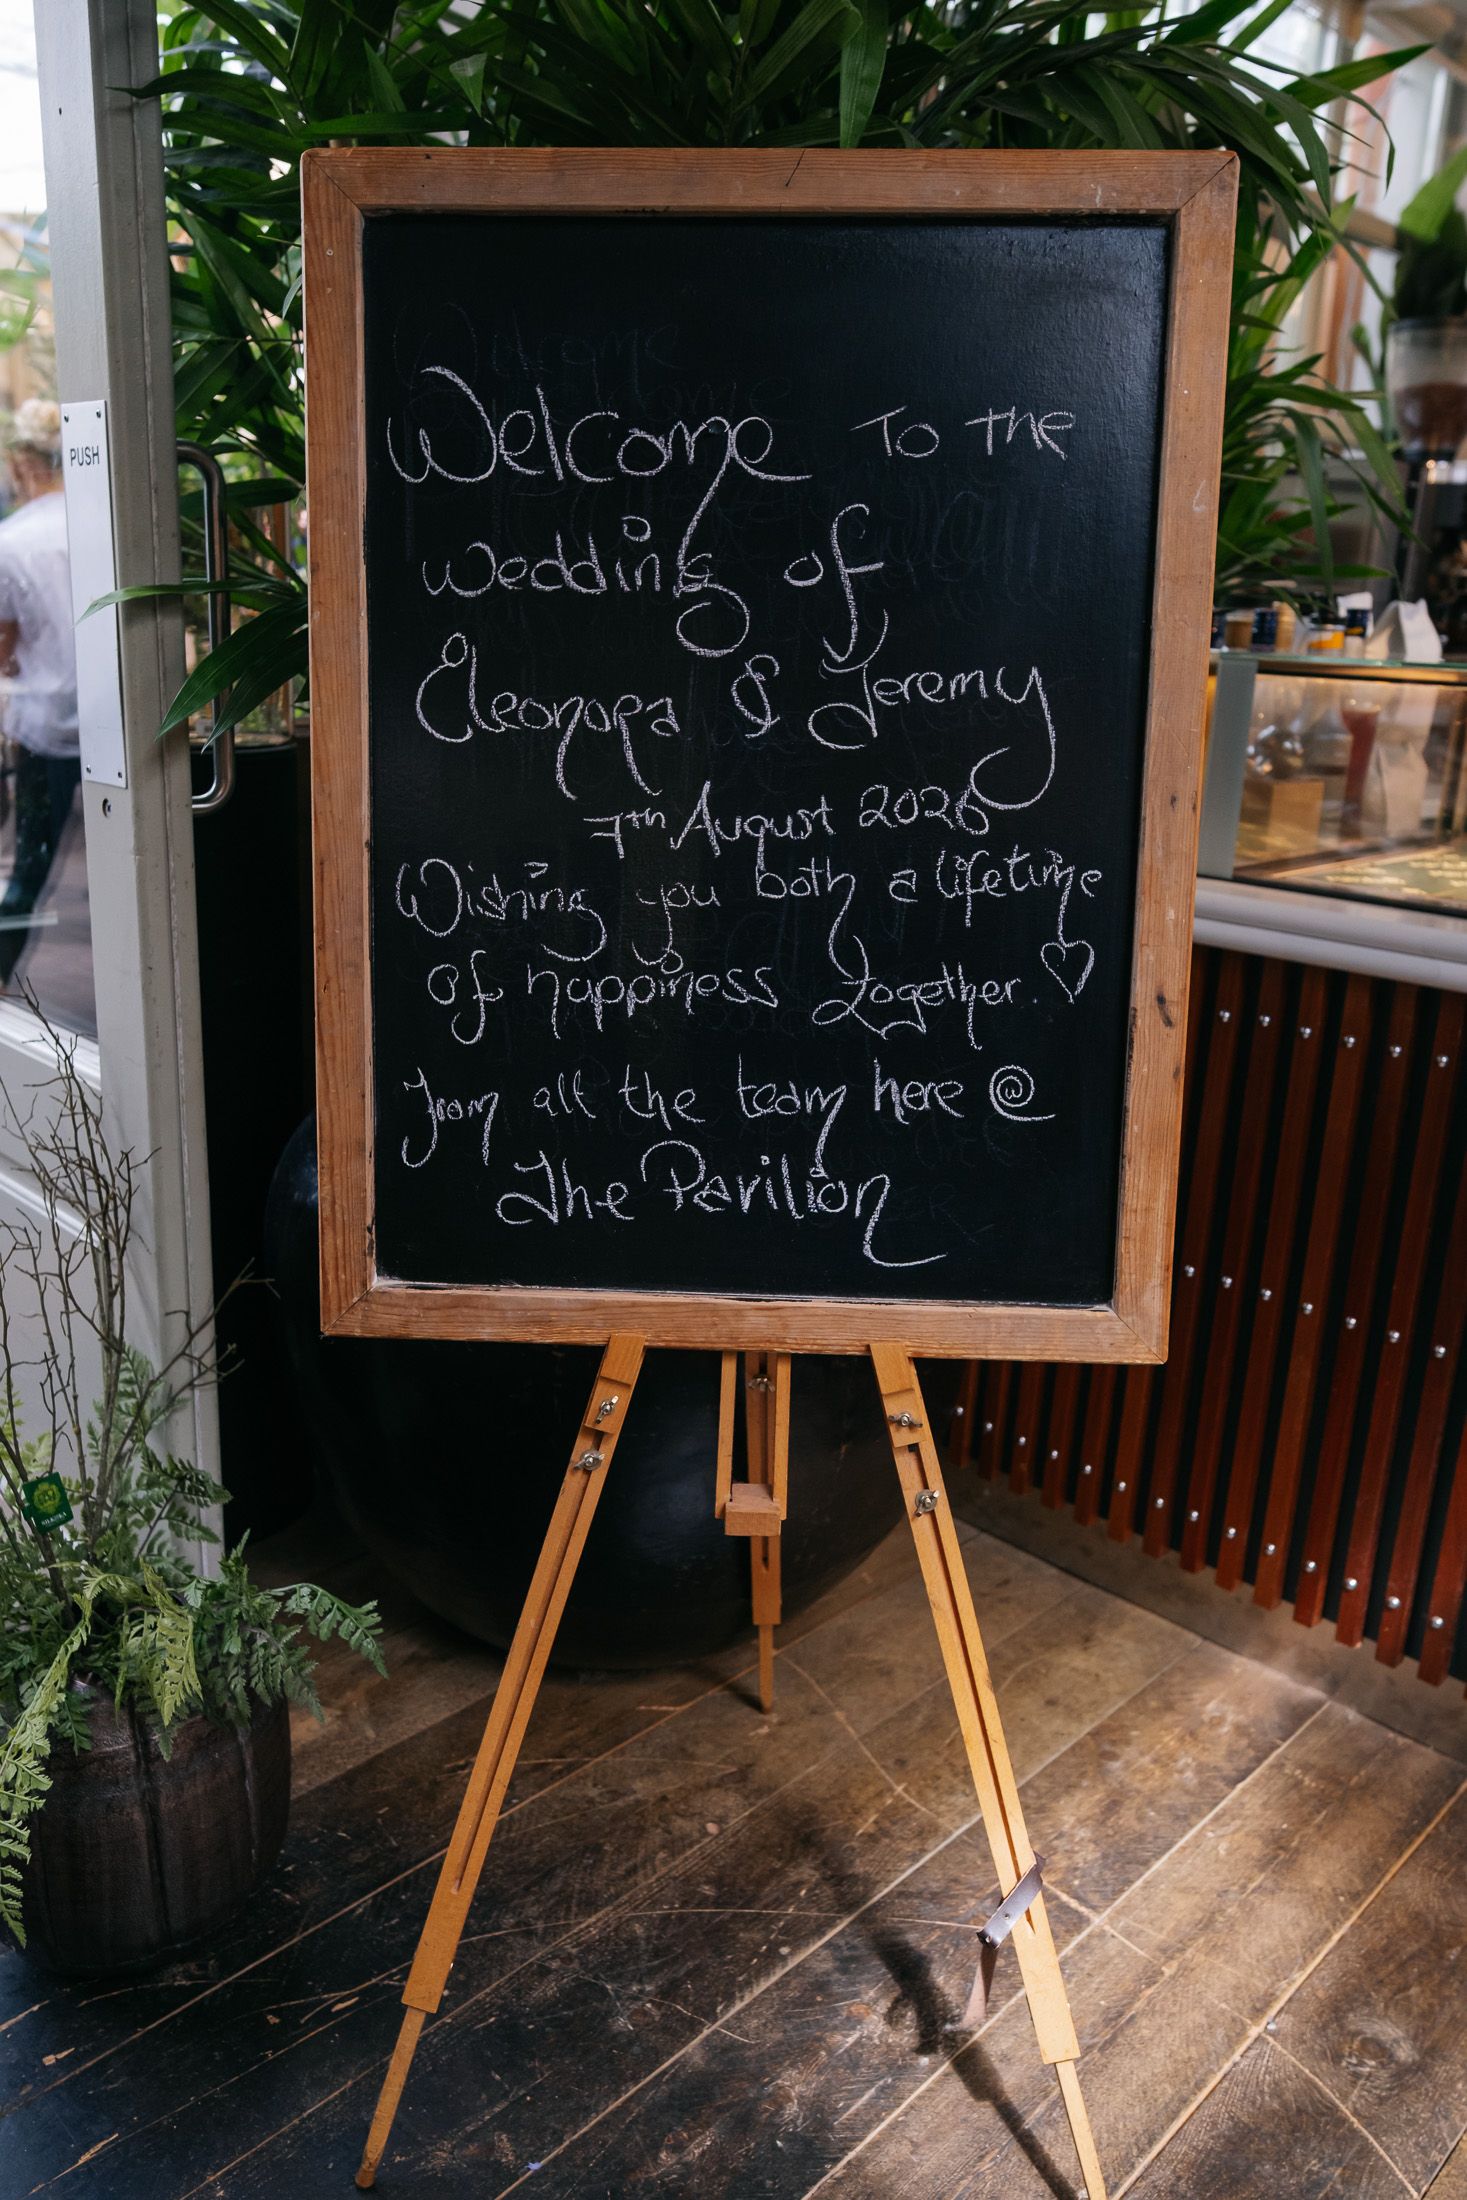 PUSH
Welcome To The
wedding of
Eleonora & Jeremy
7th August 2026
Wishing you both a lifetime
of happiness together.
From all the team here @
The Pavilion